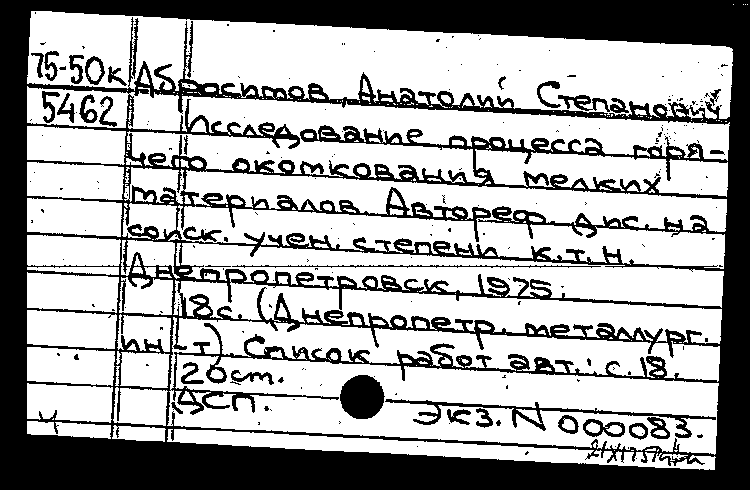 75-50к
5462
Абросимов, Анатолий Степанович
Исследование процесса горя-
чего окомкования мелких
материалов. Автореф. дис. на
соиск. учен. степени к.т.н.
Днепропетровск, 1975.
18с. (Днепропетр. металлург.
ин-т). Список работ авт.: с. 18.
20см.
ДСП.
Экз. N 000083.
Ч